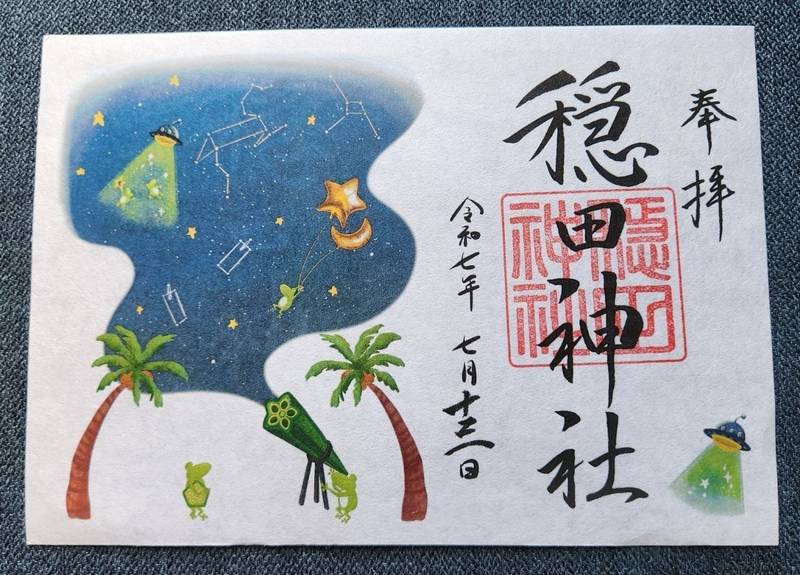 奉拝
穏田神社
穏田神社
令和七年 七月十三日